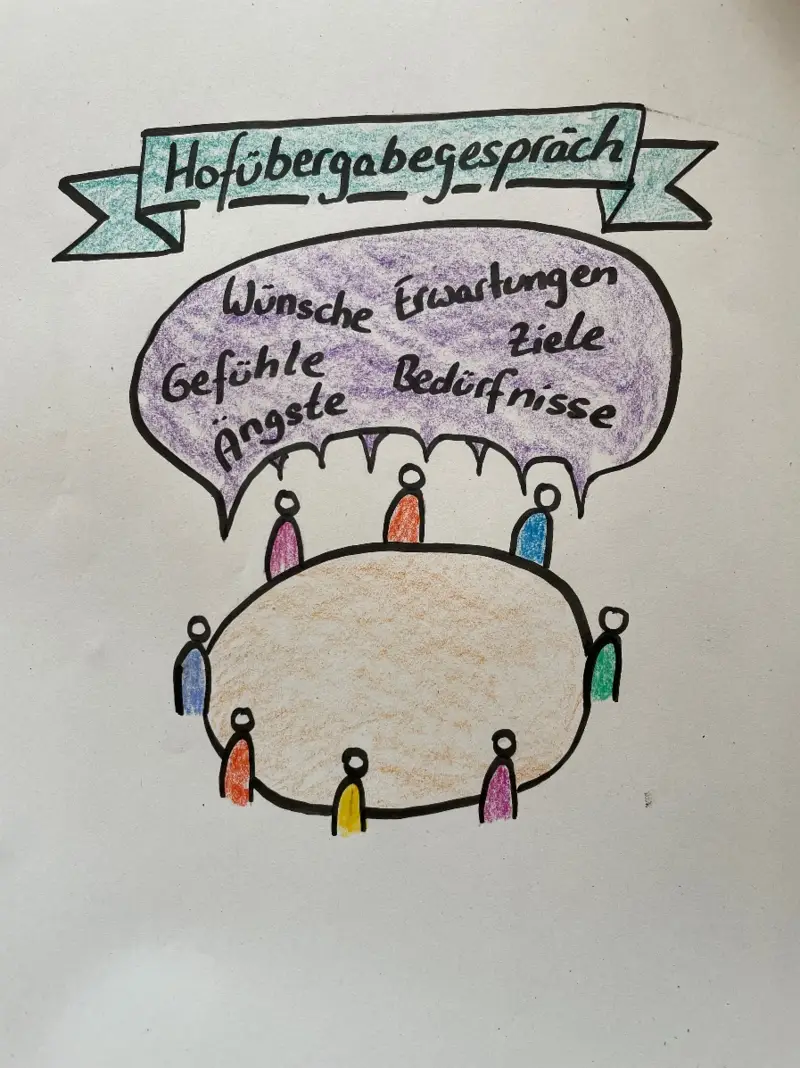 Hofübergabegespräch
Wünsche Erwartungen
Ziele
Gefühle
Bedürfnisse
Ängste